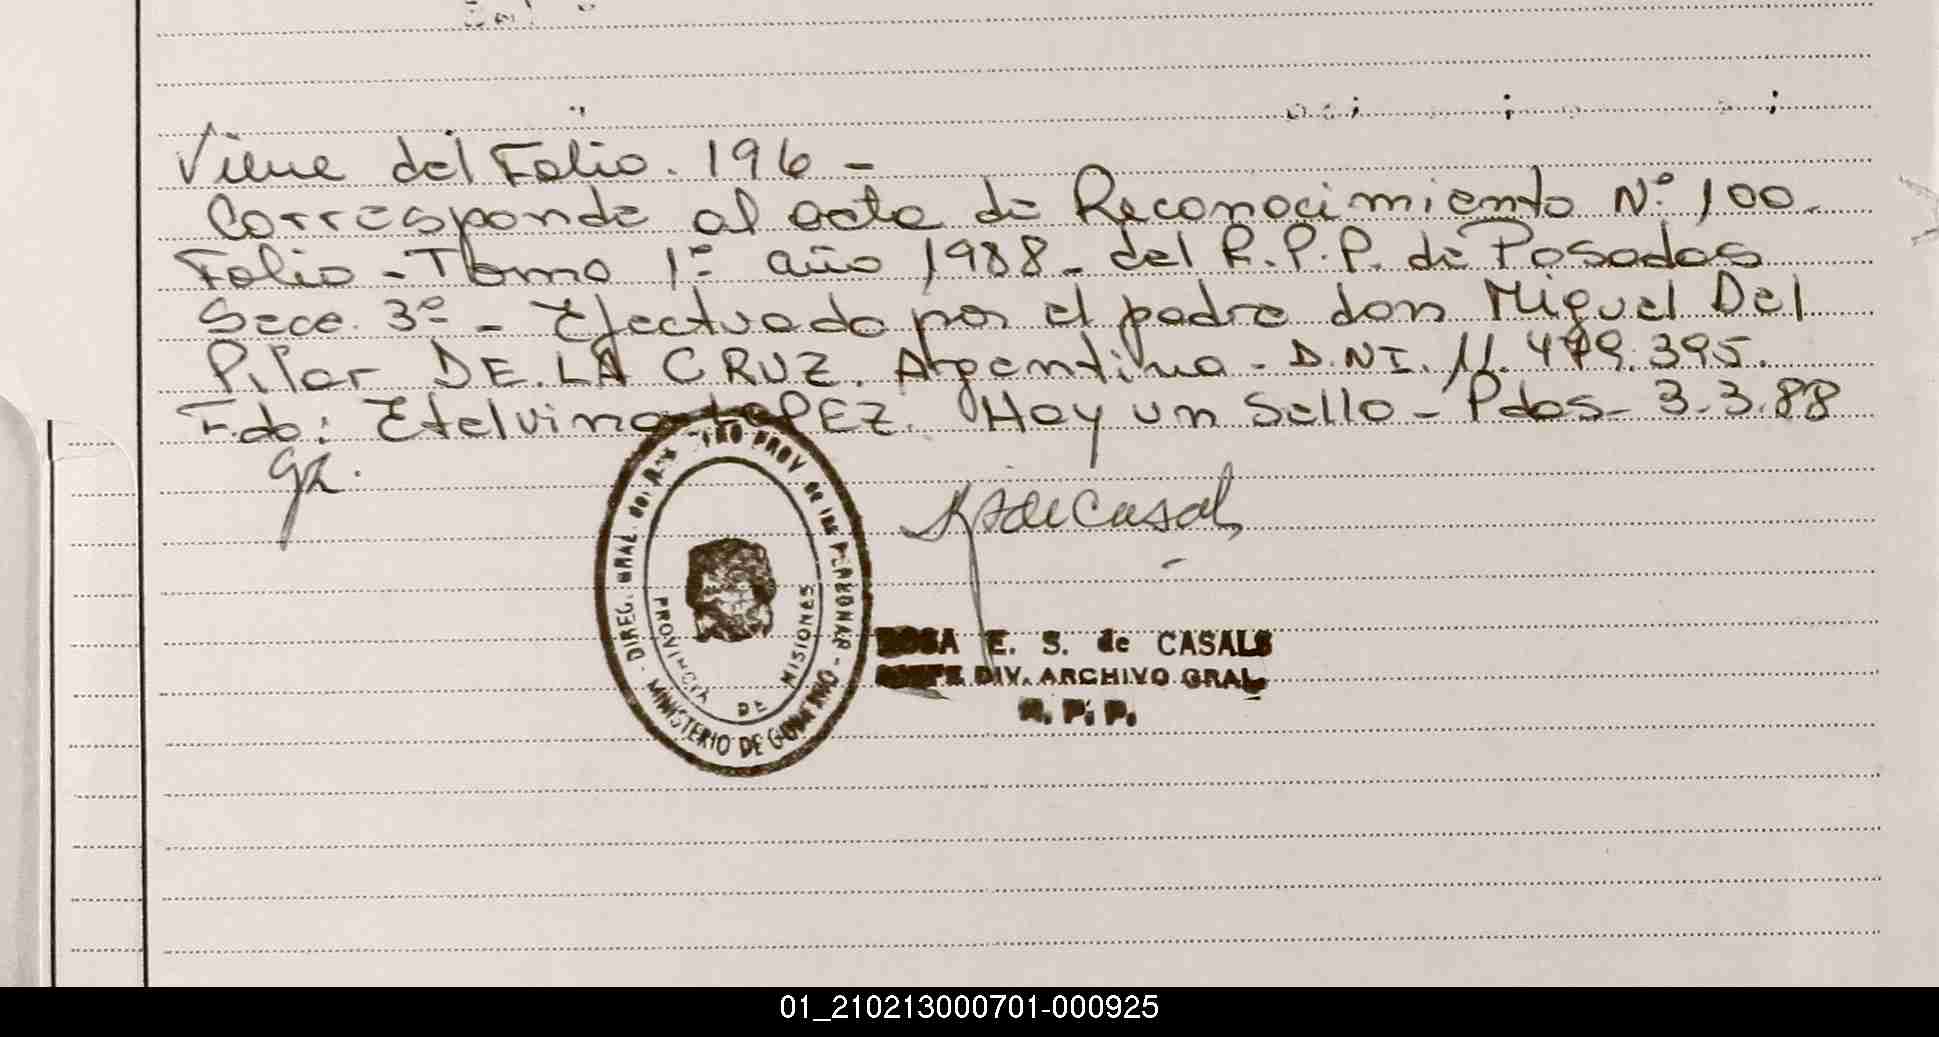 Viene del Folio. 196 -
Corresponde al acta de Reconocimiento N° 100.
Folio - Tomo 1° año 1988 - del R.P.P. de Posadas
Secc. 3° - Efectuado por el padre don Miguel Del
Pilar DE.LA CRUZ. Argentino - D.NI. 11.479.395.
F.do: Etelvina LOPEZ. Hay un Sello - Pdas - 3.3.88
DIREC. GRAL. DEL REGISTRO PROV. DE LAS PERSONAS - MINISTERIO DE GOBIERNO -
PROVINCIA DE MISIONES
ROSA E. S. de CASALS
JEFE DIV. ARCHIVO GRAL
R. P. P.
01_210213000701-000925